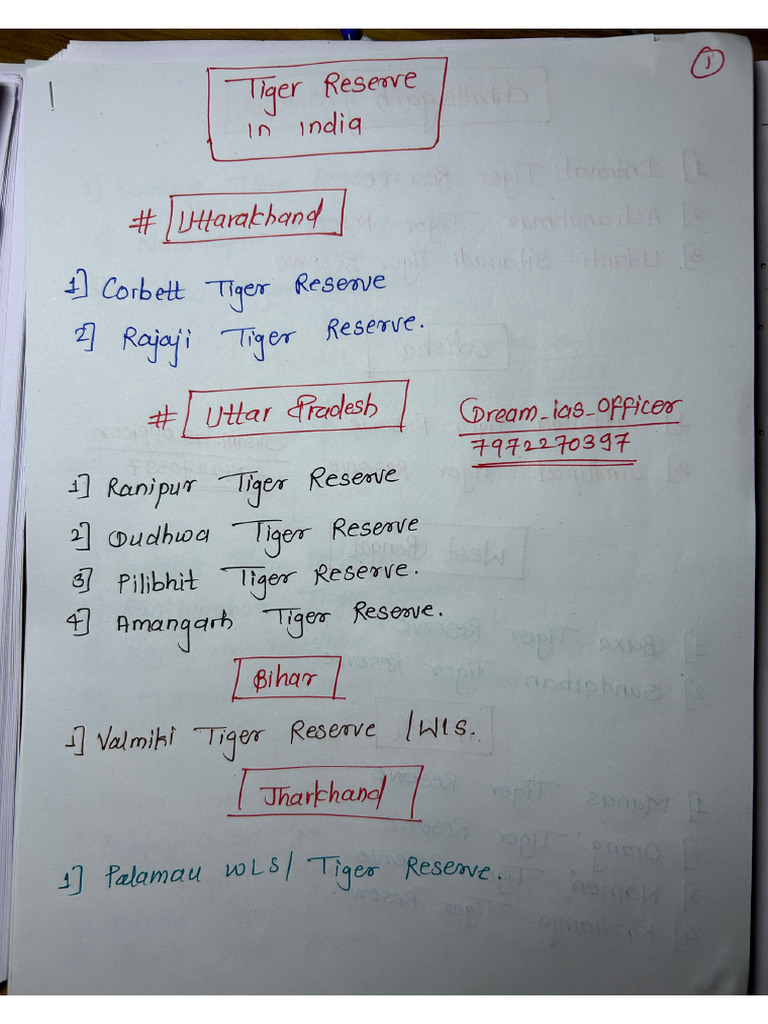 1
Tiger Reserve
in india
# Uttarakhand
1] Corbett Tiger Reserve
2] Rajaji Tiger Reserve.
# Uttar Pradesh
Dream_ias_officer
7972270397
1] Ranipur Tiger Reserve
2] Dudhwa Tiger Reserve
3] Pilibhit Tiger Reserve.
4] Amangarh Tiger Reserve.
Bihar
1] Valmiki Tiger Reserve / WLS.
Jharkhand
1] Palamau WLS/ Tiger Reserve.